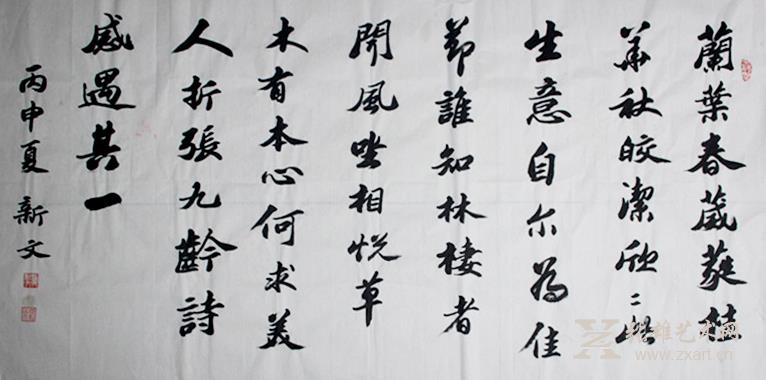 蘭葉春葳蕤桂
華秋皎潔欣〻此
生意自尔為佳
節誰知林棲者
聞風坐相悦草
木有本心何求美
人折張九齡詩
感遇其一
丙申夏 新文
雄艺术网
www.zxart.cn